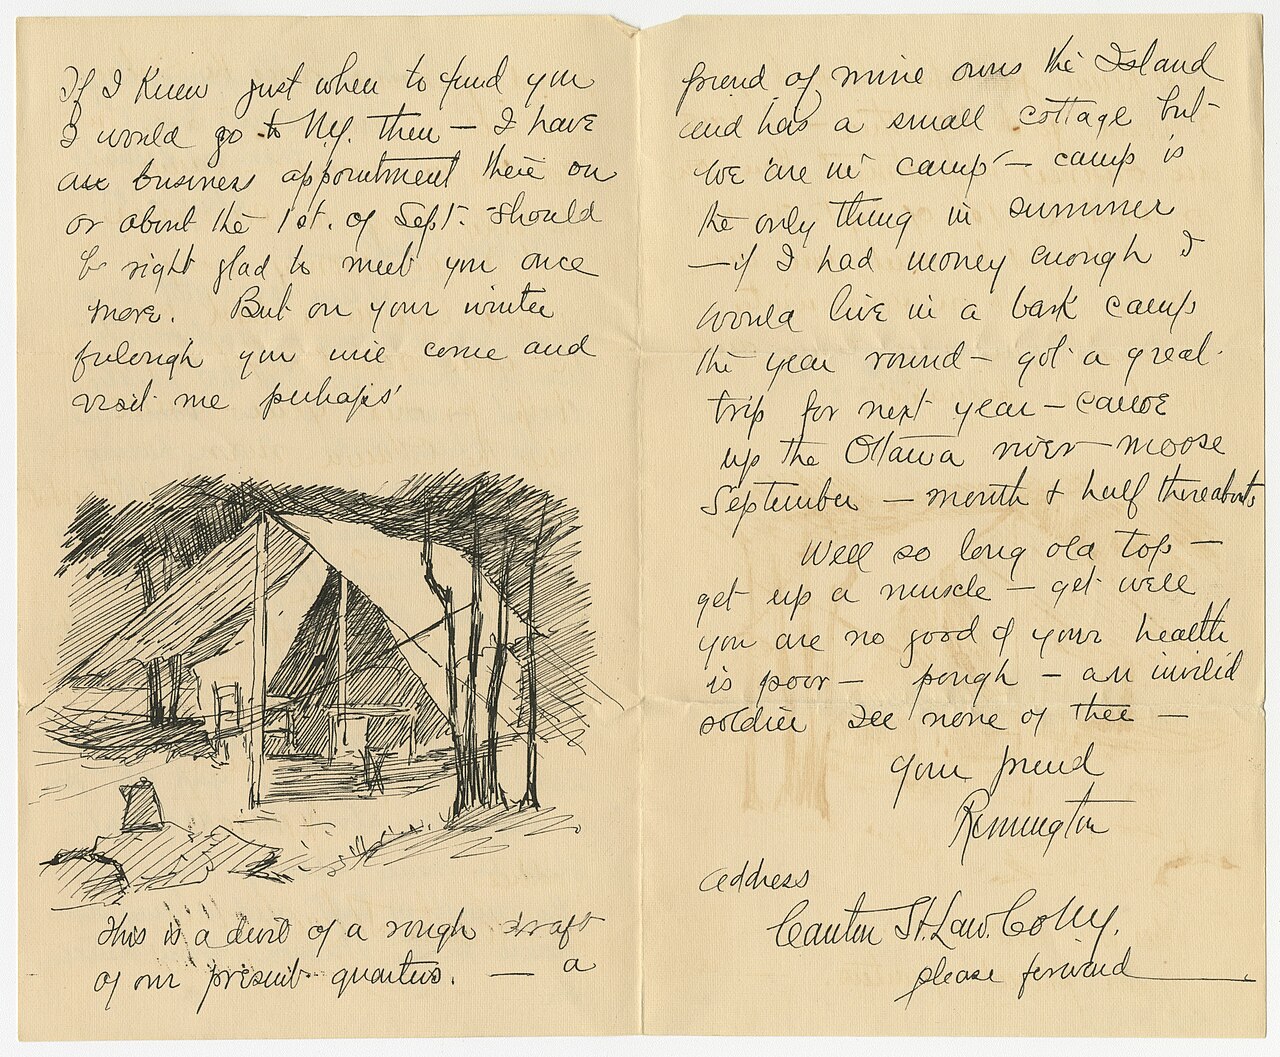 If I Knew just when to find you
I would go to N.Y. then — I have
a business appointment there on
or about the 1st. of Sept. should
be right glad to meet you once
more. But on your winter
fulough you will come and
visit me perhaps'
This is a of a rough draft
of our present quarters. — a
friend of mine owns the Island
and has a small cottage but
we are in camp — camp is
the only thing in summer
— if I had money enough I
would live in a bark camp
the year round — got a great
trip for next year — canoe
up the Ottawa river — moose
September — month & half thereabouts
Well so long old top —
get up a muscle — get well
you are no good if your health
is poor — pough — an invilid
soldier see none of thee —
Your friend
Remington
address
Canton St. Law. Co N.Y.
please forward